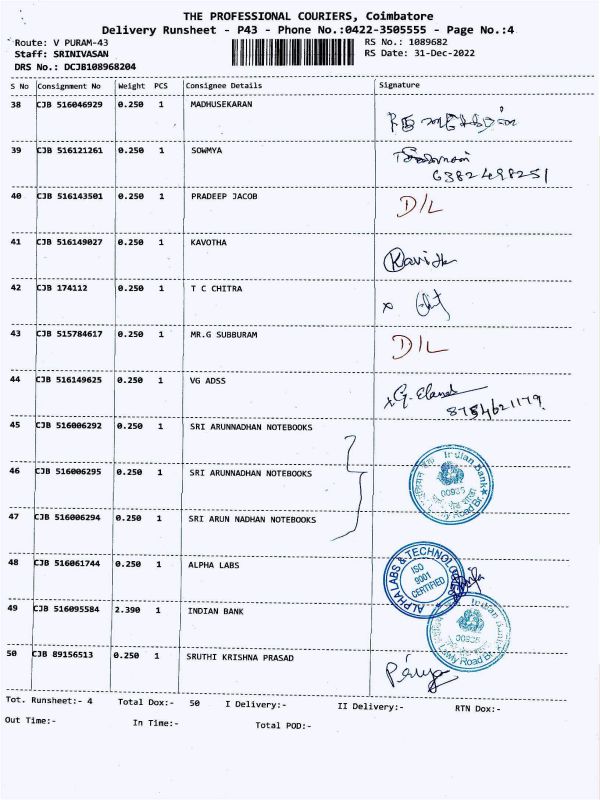 THE PROFESSIONAL COURIERS, Coimbatore
Delivery Runsheet - P43 - Phone No.:0422-3505555 - Page No.:4
Route: V PURAM-43 RS No.: 1089682
Staff: SRINIVASAN RS Date: 31-Dec-2022
DRS No.: DCJB108968204
S No Consignment No Weight PCS Consignee Details Signature
38 CJB 516046929 0.250 1 MADHUSEKARAN
39 CJB 516121261 0.250 1 SOWMYA
6382498251
40 CJB 516143501 0.250 1 PRADEEP JACOB D/L
41 CJB 516149027 0.250 1 KAVOTHA
42 CJB 174112 0.250 1 T C CHITRA
43 CJB 515784617 0.250 1 MR.G SUBBURAM D/L
44 CJB 516149625 0.250 1 VG ADSS
8754621179
45 CJB 516006292 0.250 1 SRI ARUNNADHAN NOTEBOOKS
46 CJB 516006295 0.250 1 SRI ARUNNADHAN NOTEBOOKS Indian Bank 00935
47 CJB 516006294 0.250 1 SRI ARUN NADHAN NOTEBOOKS
48 CJB 516061744 0.250 1 ALPHA LABS ALPHA LABS & TECHNOLOGIES ISO 9001 CERTIFIED
49 CJB 516095584 2.390 1 INDIAN BANK Indian Bank 00935
50 CJB 89156513 0.250 1 SRUTHI KRISHNA PRASAD
Tot. Runsheet:- 4 Total Dox:- 50 I Delivery:- II Delivery:- RTN Dox:-
Out Time:- In Time:- Total POD:-